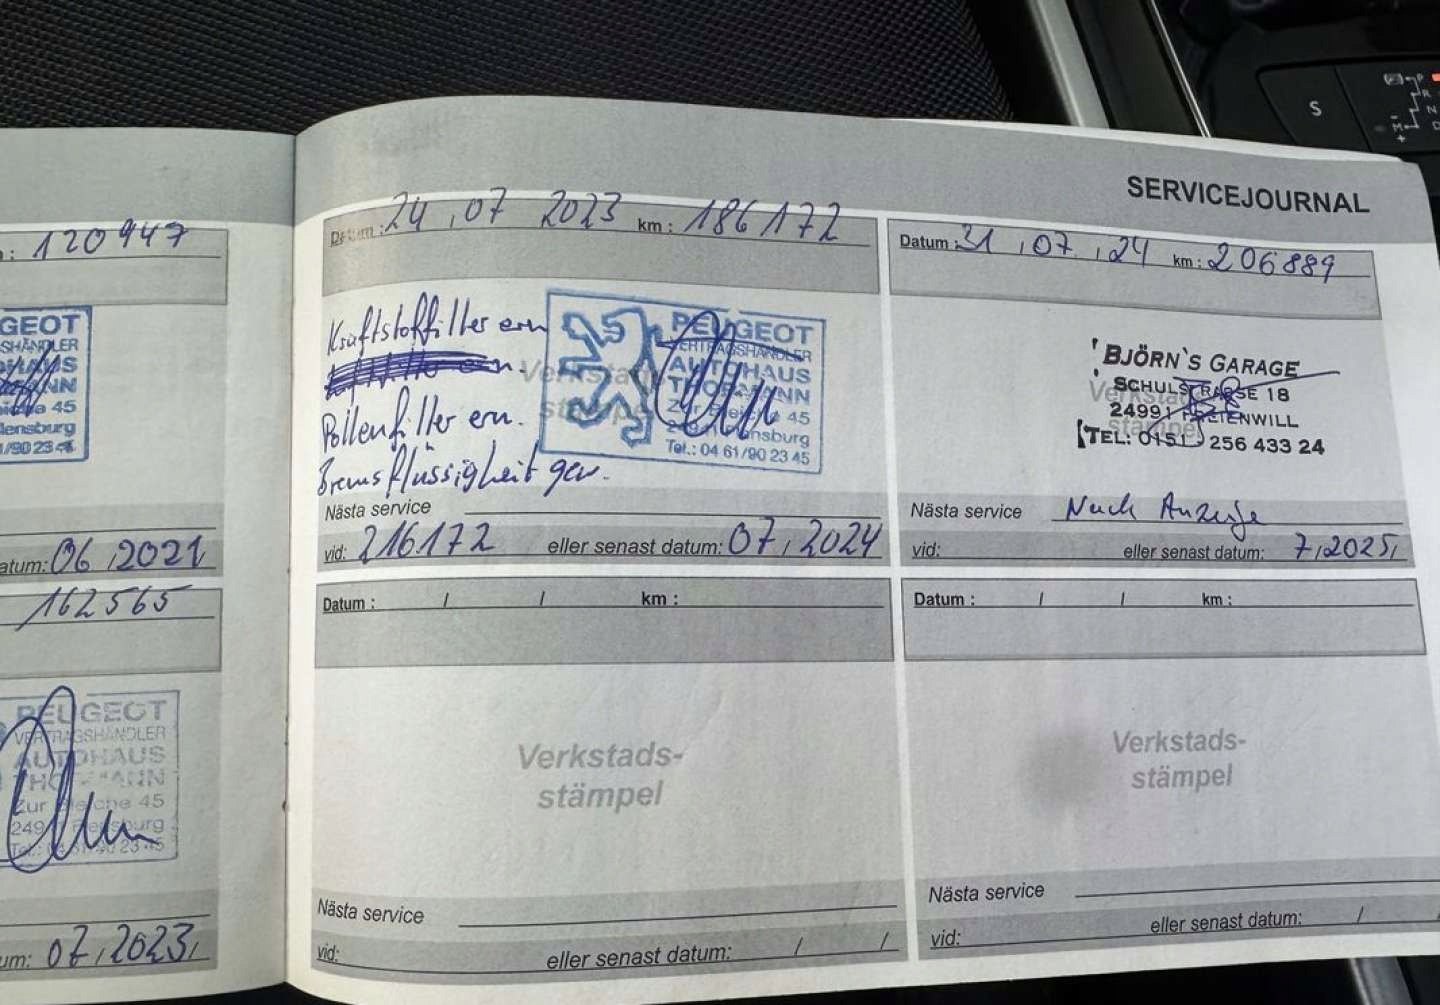 SERVICEJOURNAL
: 120947
GEOT
HÄNDLER
45
lensburg
/90 23 45
atum: 06 / 2021
162565
PEUGEOT
VERTRAGSHÄNDLER
AUTOHAUS
Zur Bleiche 45
um: 07 / 2023 /
Datum : 24 / 07 2023 km : 186172
Kraftstoffilter ern
Pollenfilter ern.
Bremsflüssigkeit gew.
PEUGEOT
VERTRAGSHÄNDLER
AUTOHAUS
Zur Bleiche 45
Flensburg
Tel.: 04 61/90 23 45
Nästa service
vid: 216172 eller senast datum: 07 / 2024
Datum : 31 / 07 / 24 km : 206889
BJÖRN`S GARAGE
SCHULSTRASSE 18
24991 FREIENWILL
TEL: 0151 256 433 24
Nästa service Nach Anzeige
vid: eller senast datum: 7 / 2025 /
Datum : / / km :
Verkstads-
stämpel
Nästa service
vid: eller senast datum: / /
Datum : / / km :
Verkstads-
stämpel
Nästa service
vid: eller senast datum: / /
S
P
R
N
D
M
+
-